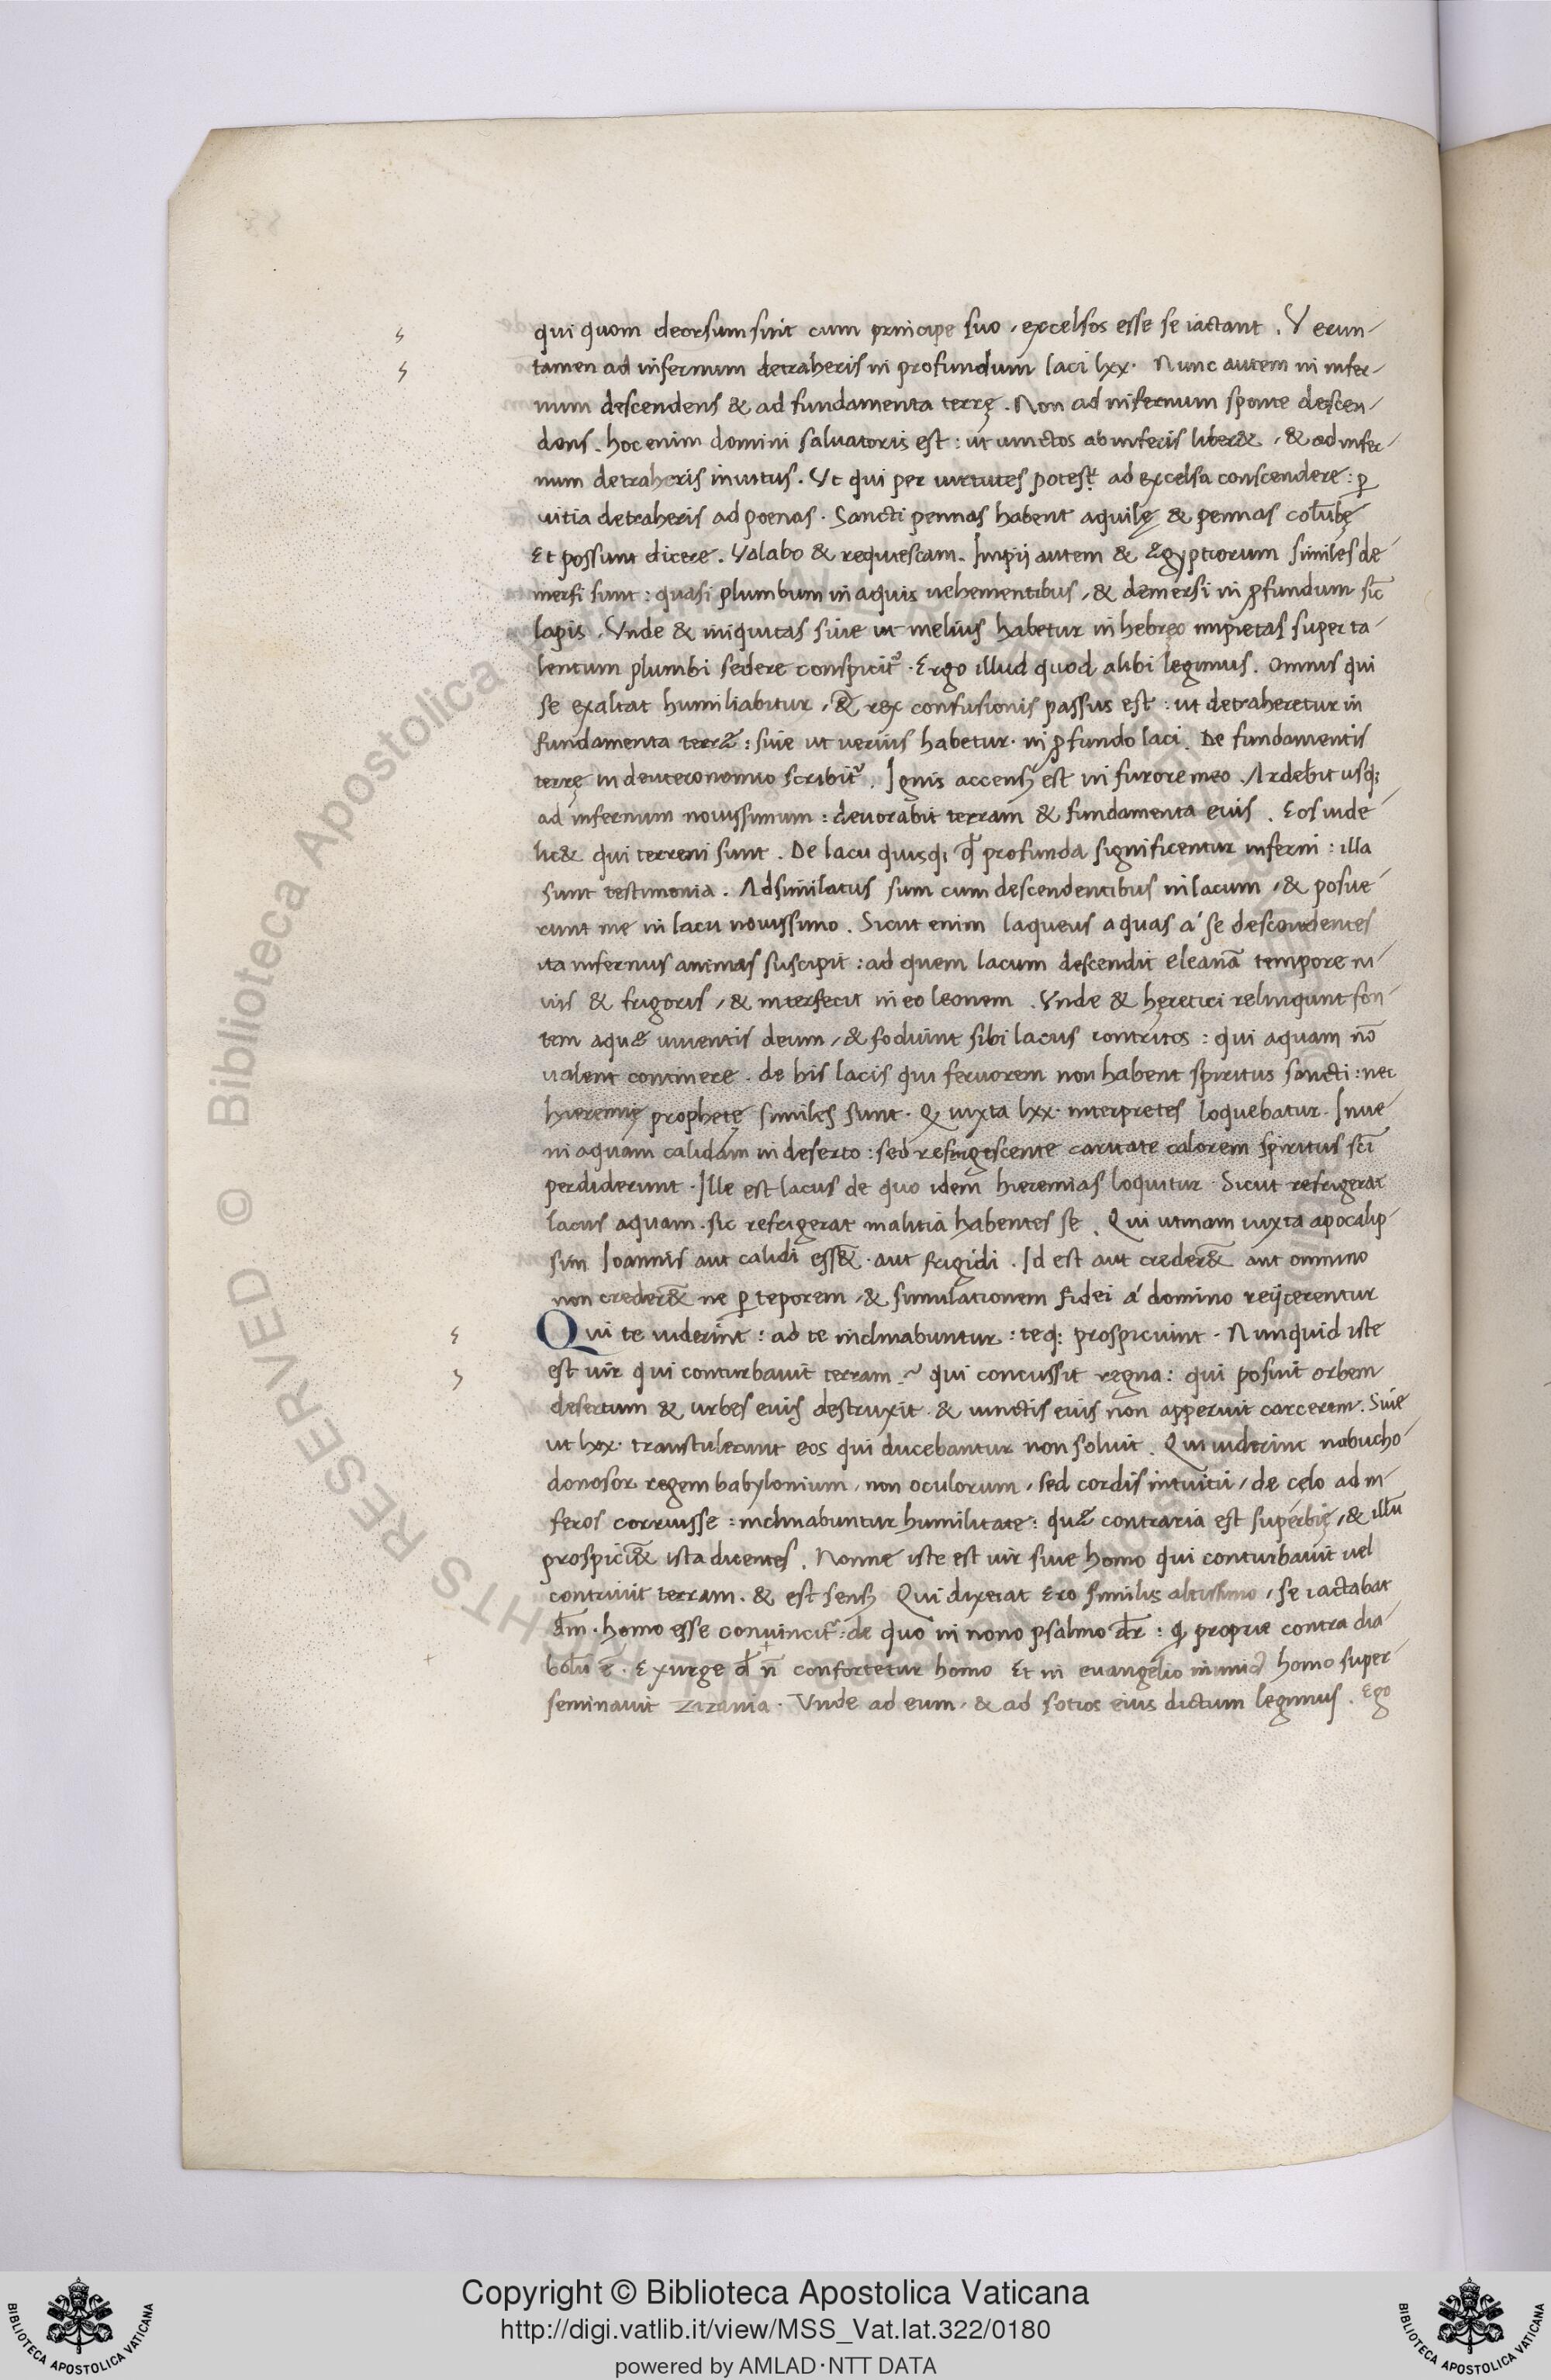 qui quom deorsum sint cum principe suo, excelsos esse se iactant. Verun-
tamen ad infernum detraheris in profundum laci lxx. Nunc autem in infer-
num descendens & ad fundamenta terrę. Non ad infernum sponte descen-
dens. hoc enim domini saluatoris est: ut uinctos ab inferis liber&, & ad infer-
num detraheris inuitus. Ut qui per uirtutes potest ad excelsa conscendere: ꝑ
uitia detraheris ad poenas. Sancti pennas habent aquilę & pennas colūbę
Et possunt dicere. Volabo & requiescam. Impij autem & ægyptiorum similes de
mersi sunt: quasi plumbum in aquis uehementibus, & demersi in ꝓfundum sic̄
lapis. Vnde & iniquitas siue ut melius habetur in hebręo impietas super ta-
lentum plumbi sedere conspicit᷑. Ergo illud quod alibi legimus. Omnis qui
se exaltat humiliabitur, & rex confusionis passus est: ut detraheretur in
fundamenta terræ: siue ut uerius habetur. in ꝓfundo laci. De fundamentis
terrę in deuteronomio scribit᷑. Ignis accensꝰ est in furore meo. Ardebit usq;
ad infernum nouissimum: deuorabit terram & fundamenta euis. Eos uide-
lic& qui terreni sunt. De lacu quisq; ꝙ profunda significentur inferni: illa
sunt testimonia. Adsimilatus sum cum descendentibus in lacum, & posue-
runt me in lacu nouissimo. Sicut enim laqueus aquas á se descendentes
ita infernus animas suscipit: ad quem lacum descendit eleanā tempore ni-
uis & frigoris, & interfecit in eo leonem. Vnde & hęretici relinqunt fon-
tem aquæ uiuentis deum, & fodiunt sibi lacus contritos: qui aquam nō
ualent continere. de his lacis qui feruorem non habent spiritus sancti: nec
hieremię prophetę similes sunt. Q iuxta lxx. interpretes loquebatur. Inue-
ni aquam calidam in deserto: sed refrigescente caritate calorem spiritus sc̄i
perdiderunt. Ille est lacus de quo idem hieremias loquitur. Sicut refrigerat
lacus aquam. sic refrigerat malitiā habentes se. Qui utinam iuxta apocalip-
sim Ioannis aut calidi ess&̄. aut frigidi. Id est aut creder&̄ aut omnino
non creder&̄ ne ꝑ teporem, & simulationem fidei á domino reijcerentur
Qui te uiderint: ad te inclinabuntur: teq; prospicuint. Nunquid iste
est uir qui conturbauit terram. qui concussit regna: qui posuit orbem
desertum & urbes euis destruxit. & uinctis euis non apperuit carcerem. Siue
ut lxx. transtulerunt eos qui ducebantur non soluit. Qui uiderint nabucho-
donosor regem babylonium, non oculorum, sed cordis intuitu, de cęlo ad in-
feros corruisse: inclinabuntur humilitate: quæ contraria est superbię, & illū
prospici&̄ ista dicentes. Nonne iste est uir siue homo qui conturbauit uel
contriuit terram. & est sensꝰ Qui dixerat Ero similis altissimo, se iactabat
d̄m. homo esse conuincit᷑: de quo in nono psalmo d̄r: Q proprie contra dia-
bolū ē. Exurge d̄ n̄ confortetur homo Et in euangelio inimicꝰ homo super-
seminauit zizania. Vnde ad eum, & ad sotios eius dictum legimus. Ego
Copyright © Biblioteca Apostolica Vaticana
http://digi.vatlib.it/view/MSS_Vat.lat.322/0180
powered by AMLAD·NTT DATA